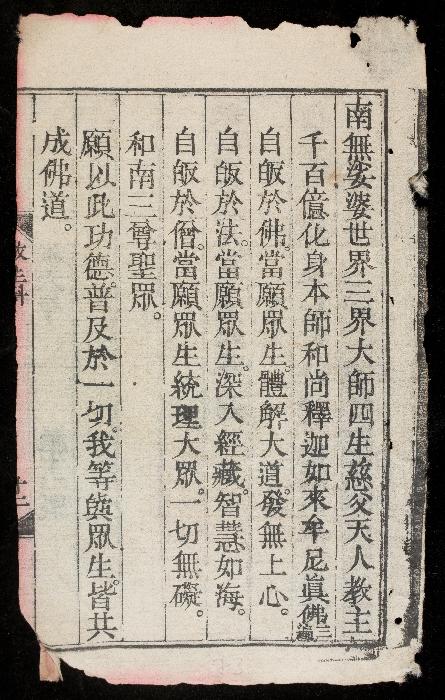 南無娑婆世界三界大師四生慈父天人教主
千百億化身本師和尚釋迦如來牟尼眞佛三編
自皈於佛。當願眾生。體解大道。發無上心。
自皈於法。當願眾生。深入經藏。智慧如海。
自皈於僧。當願眾生。統理大眾。一切無礙。
和南三尊聖眾。
願以此功德。普及於一切。我等與眾生。皆共
成佛道。